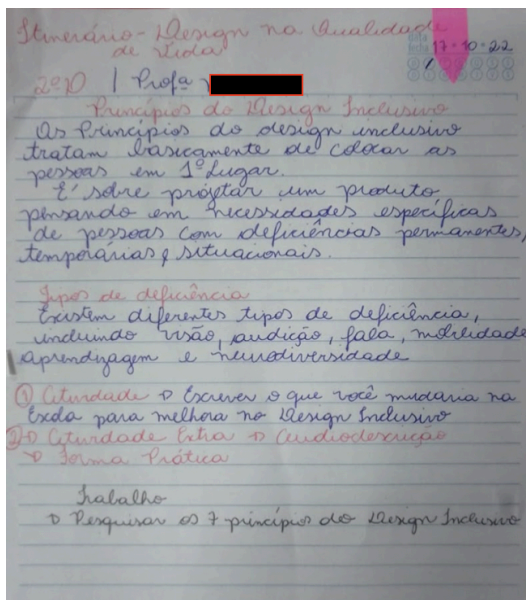 Itinerário - Design na Qualidade
de Vida
data
fecha 17 - 10 - 22
2ºD | Profª
Princípios do Design Inclusivo
Os Princípios do design inclusivo
tratam basicamente de colocar as
pessoas em 1º Lugar.
É sobre projetar um produto
pensando em necessidades específicas
de pessoas com deficiências permanentes,
temporárias e situacionais.
Tipos de deficiência
Existem diferentes tipos de deficiência,
incluindo visão, audição, fala, mobilidade
aprendizagem e neurodiversidade
① Atividade → Escrever o que você mudaria na
Escola para melhora no Design Inclusivo
② → Atividade Extra → Audiodescrição
→ Forma Prática
Trabalho
→ Pesquisar os 7 princípios do Design Inclusivo